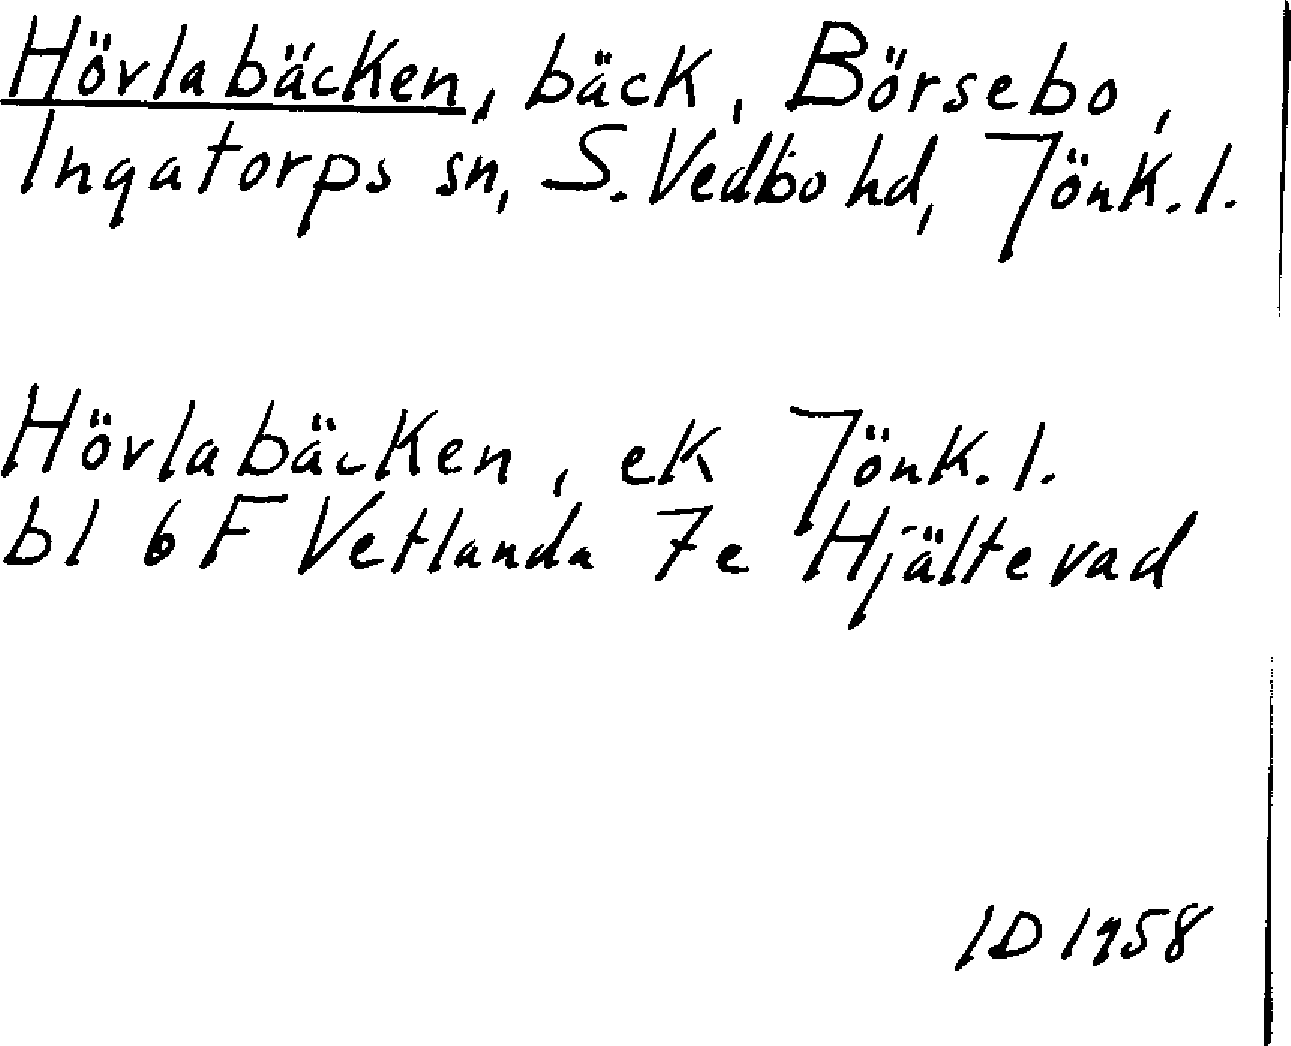 Hövlabäcken, bäck, Börsebo,
Ingatorps sn, S. Vedbo hd, Jönk. l.
Hövlabäcken, ek Jönk. l.
bl 6 F Vetlanda 7e Hjältevad
ID 1958